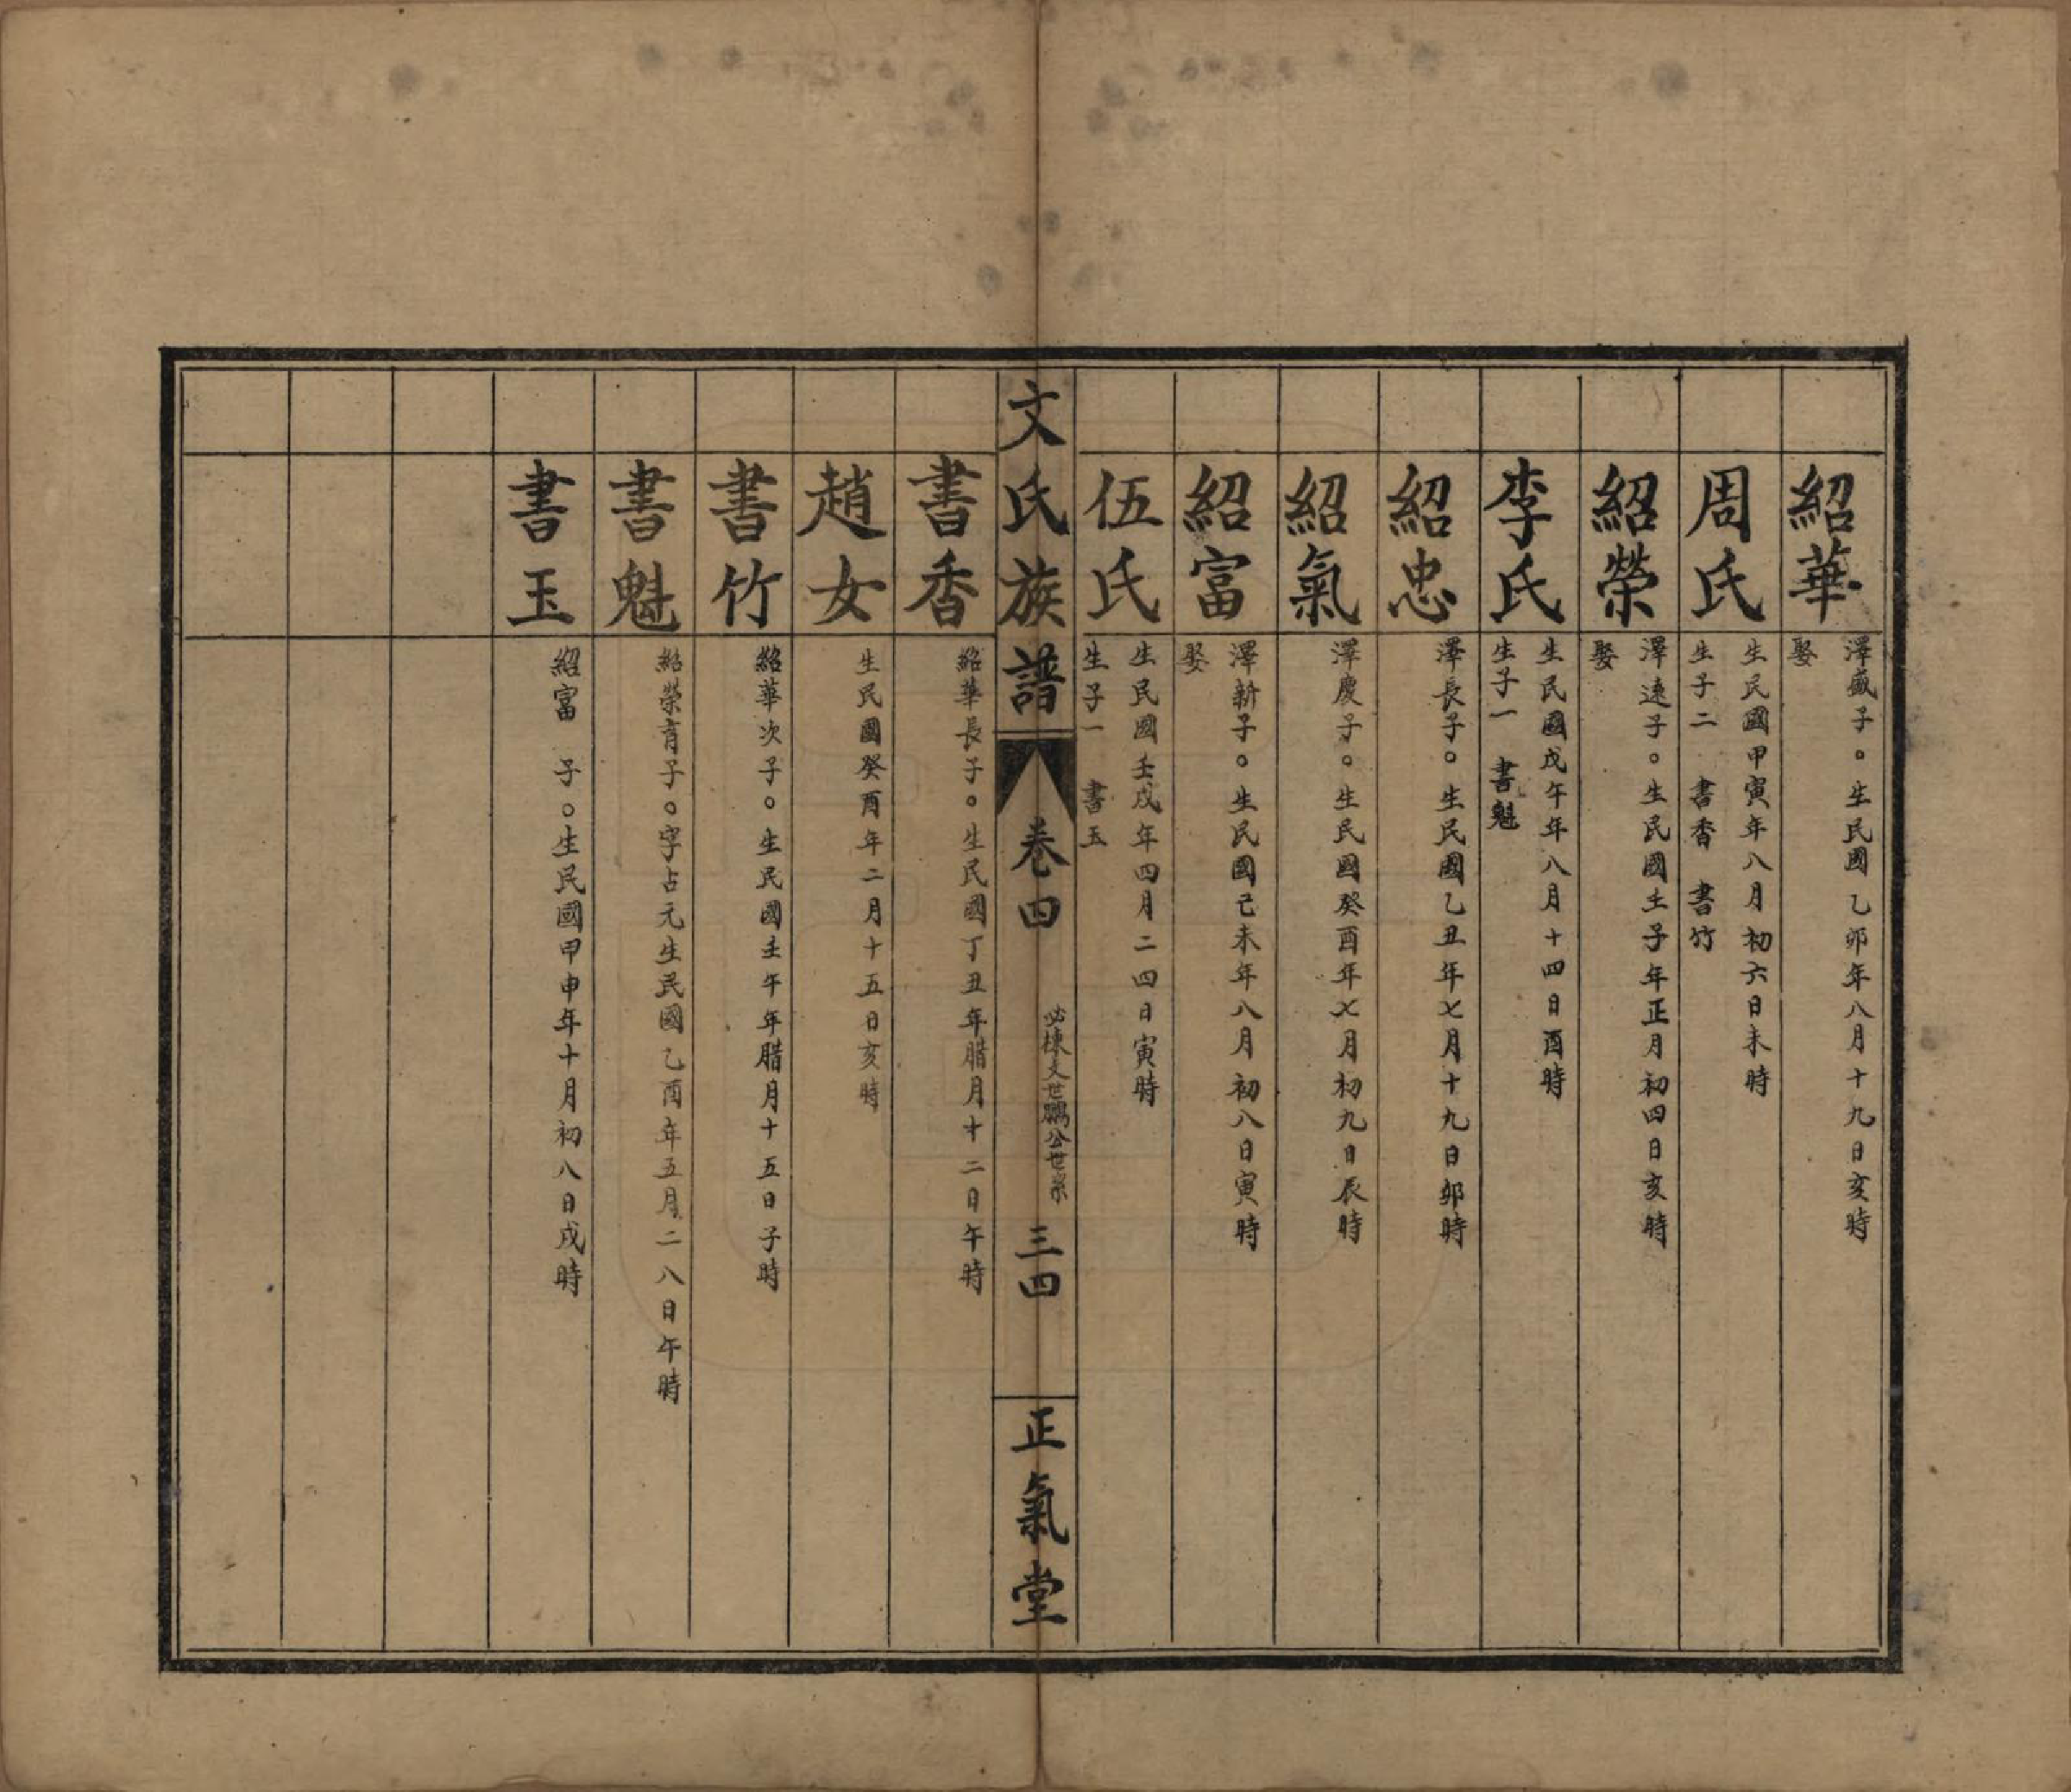 紹華
澤盛子。生民國乙卯年八月十九日亥時
娶
周氏
生民國甲寅年八月初六日未時
生子二 書香 書竹
紹榮
澤遠子。生民國壬子年正月初四日亥時
娶
李氏
生民國戊午年八月十四日酉時
生子一 書魁
紹忠
澤長子。生民國乙丑年七月十九日卯時
紹氣
澤慶子。生民國癸酉年七月初九日辰時
紹富
澤新子。生民國己未年八月初八日寅時
娶
伍氏
生民國壬戌年四月二四日寅時
生子一 書玉
文氏族譜 卷四 必棟文世鵬公世系 三四 正氣堂
書香
紹華長子。生民國丁丑年腊月十二日午時
趙女
生民國癸酉年二月十五日亥時
書竹
紹華次子。生民國壬午年腊月十五日子時
書魁
紹榮育子。字占元生民國乙酉年五月二八日午時
書玉
紹富 子。生民國甲申年十月初八日戌時